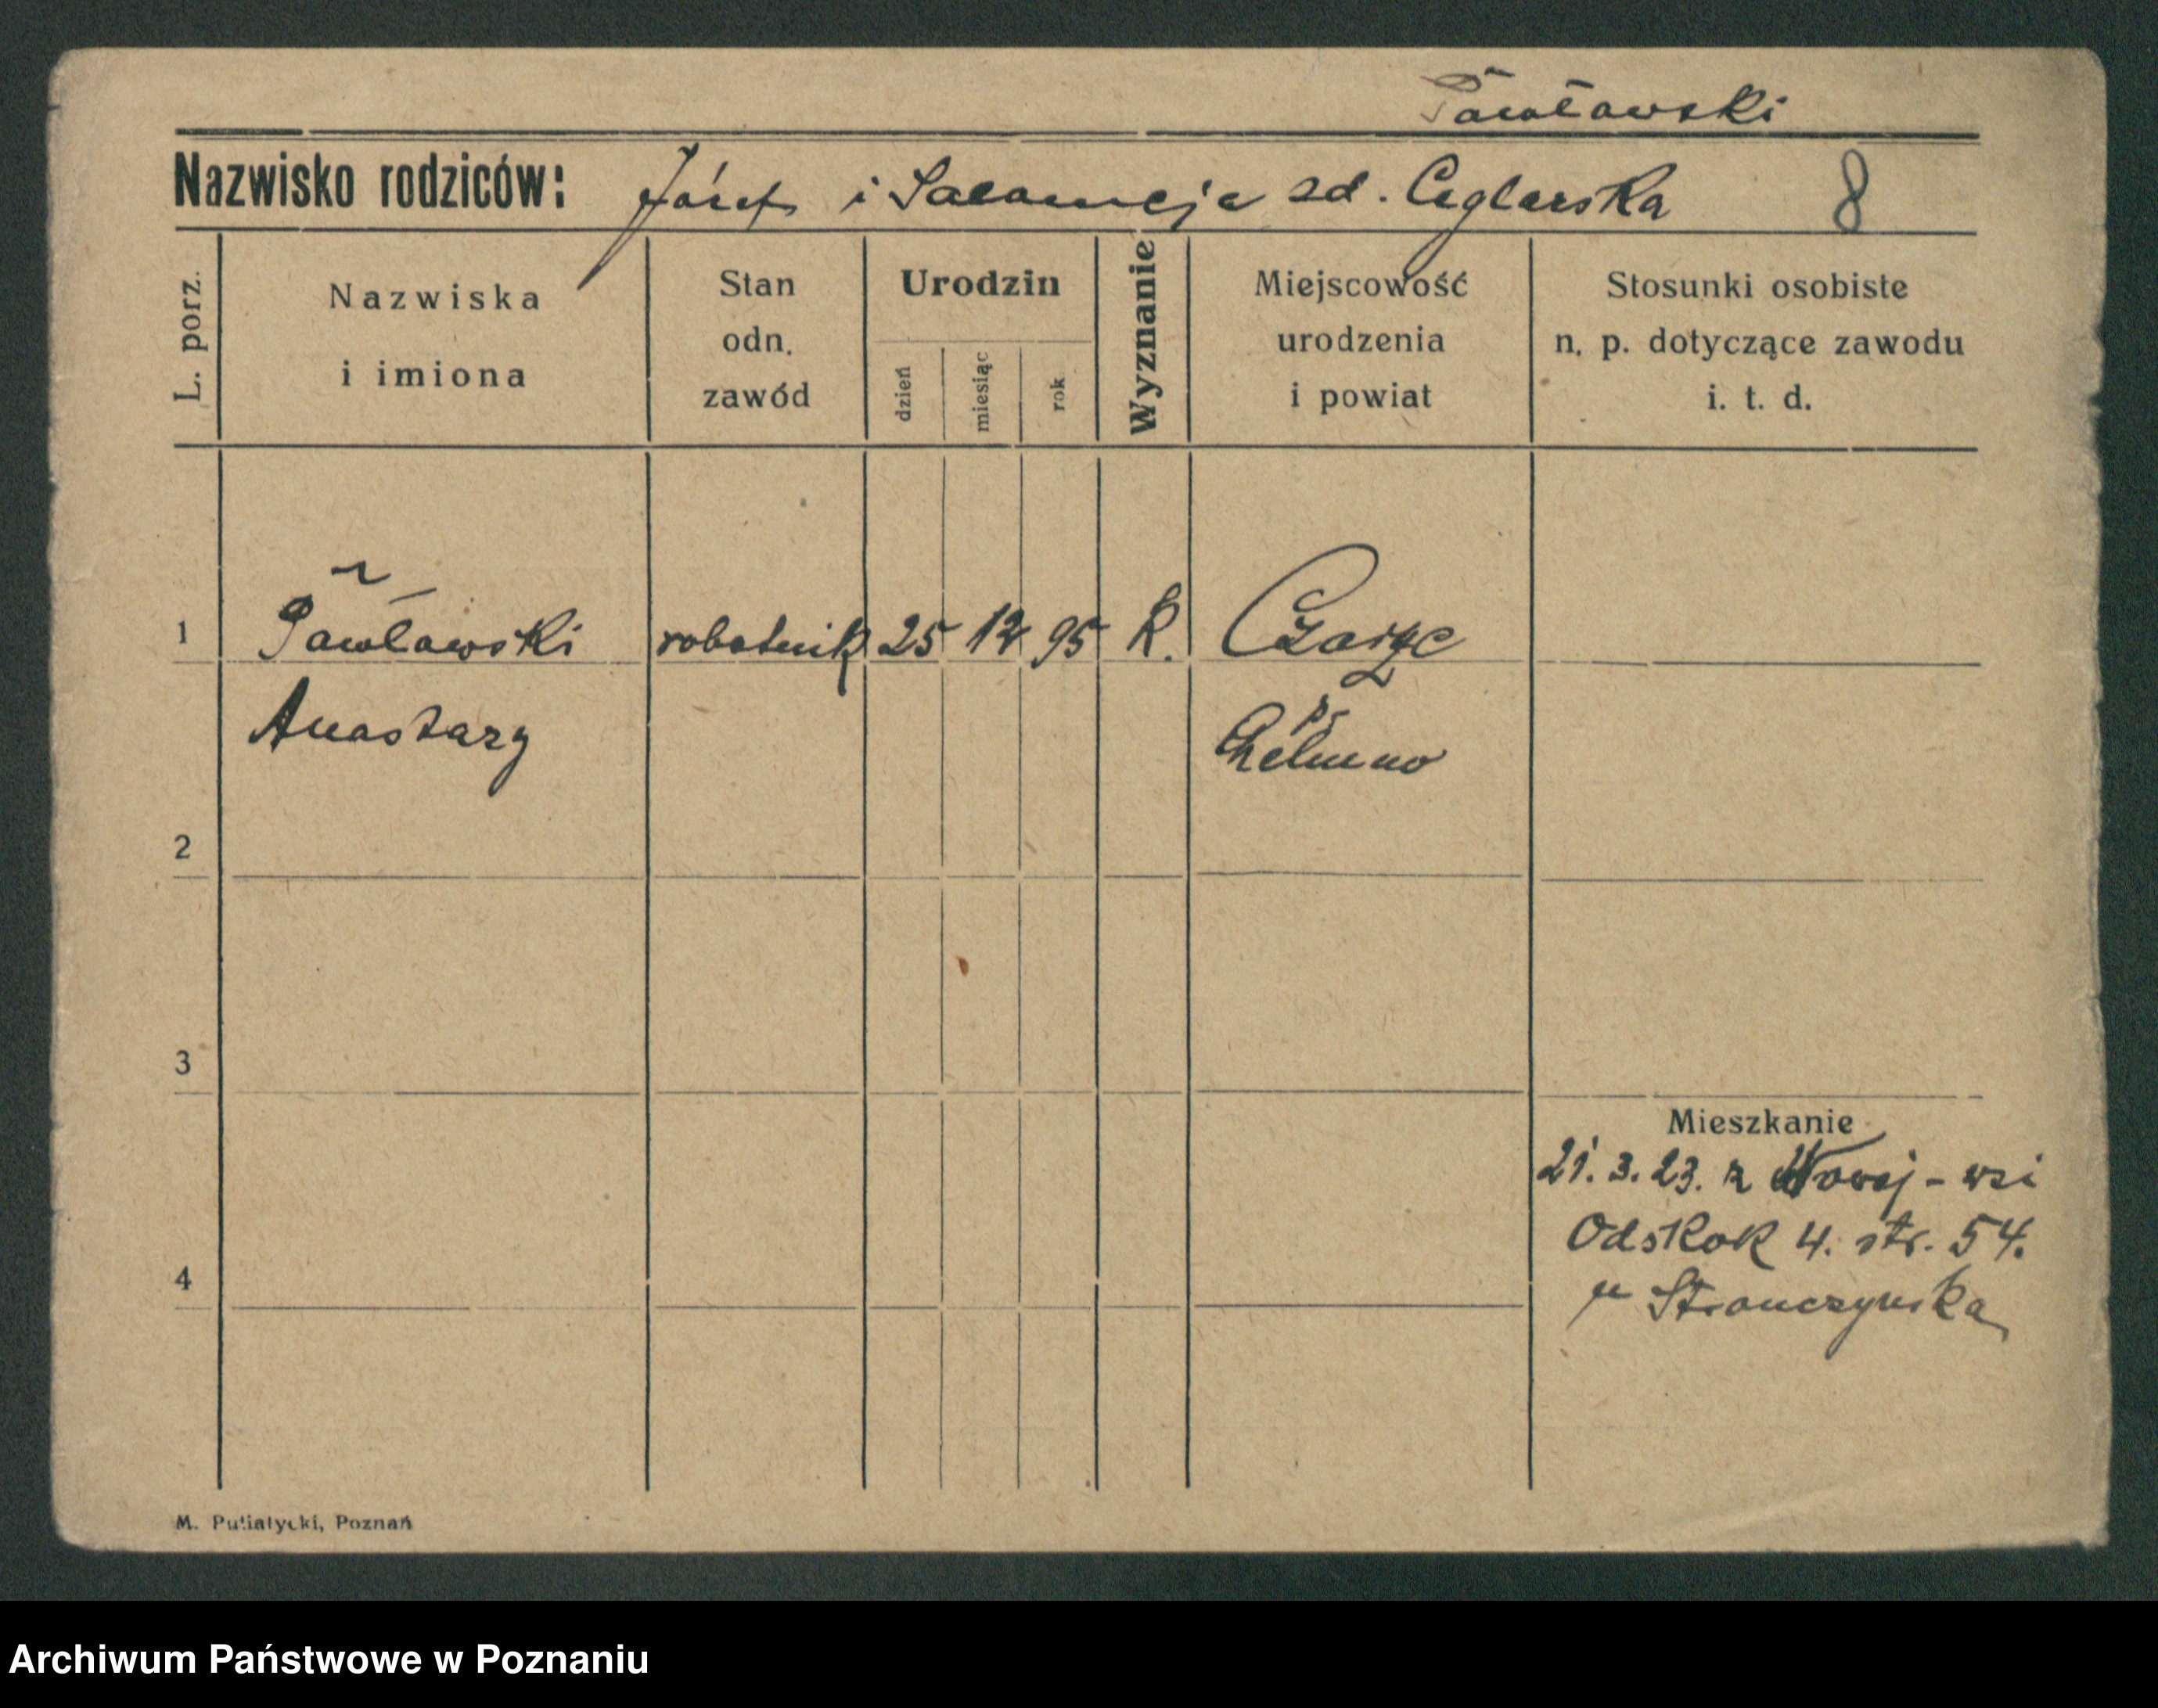 Pawławski
Nazwisko rodziców: Józef i Salomeja zd. Ceglarska 8
L. porz.
Nazwiska
i imiona
Stan
odn.
zawód
Urodzin
dzień
miesiąc
rok
Wyznanie
Miejscowość
urodzenia
i powiat
Stosunki osobiste
n. p. dotyczące zawodu
i. t. d.
1 Pawławski robotnik 25 12 95 K.
Anastazy
Chełmno
2
3
4
Mieszkanie
21. 3. 23. z Nowej-wsi
Odskok 4. str. 54.
u Stranczynska
M. Putiatycki, Poznań
Archiwum Państwowe w Poznaniu